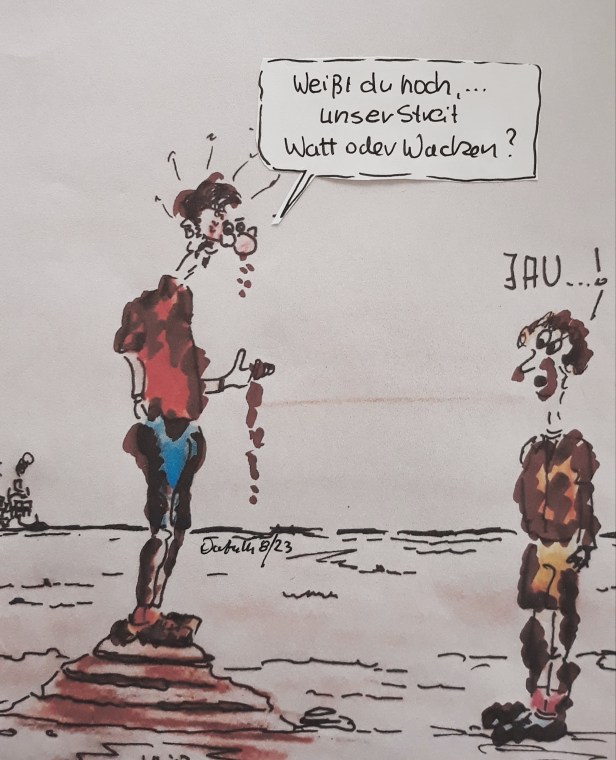 Weißt du noch,...
unser Streit
Watt oder Wacken?
JAU...!
8/23